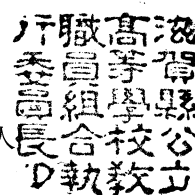 滋賀縣公立
高等學校教
職員組合執
行委員長